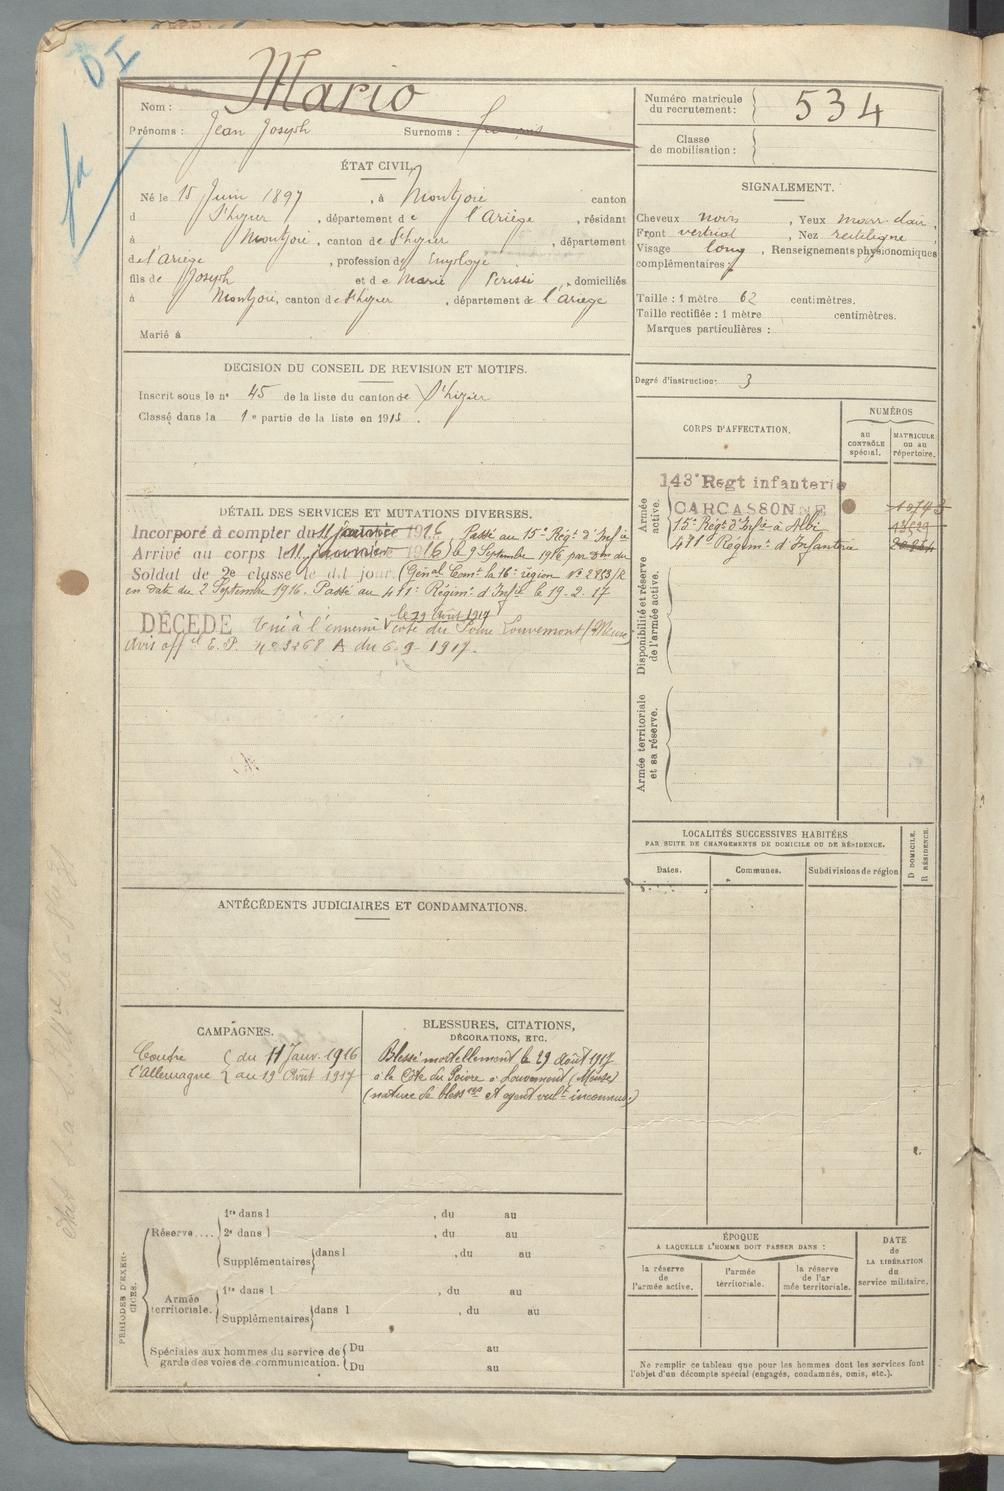 DI
Nom : Mario
Prénoms : Jean Joseph Surnoms :
Numéro matricule
du recrutement : 534
Classe
de mobilisation :
ÉTAT CIVIL.
Né le 15 Juin 1897, à Montjoie canton
d St Lizier, département de l'Ariège, résidant
à Montjoie, canton de St Lizier, département
de l'Ariège, profession d Employé
fils de Joseph et de Marie Périssé, domiciliés
à Montjoie, canton de St Lizier, département de l'Ariège
Marié à
SIGNALEMENT.
Cheveux noirs, Yeux marr. clair,
Front vertical, Nez rectiligne,
Visage long, Renseignements physionomiques
complémentaires :
Taille : 1 mètre 62 centimètres.
Taille rectifiée : 1 mètre centimètres.
Marques particulières :
Degré d'instruction : 3
DECISION DU CONSEIL DE REVISION ET MOTIFS.
Inscrit sous le n° 45 de la liste du canton de St Lizier
Classé dans la 1e partie de la liste en 1915.
DÉTAIL DES SERVICES ET MUTATIONS DIVERSES.
Incorporé à compter du 11 janvier 1916 Passé au 15e Régt d'Infie
Arrivé au corps le 11 janvier 1916 le 9 Septembre 1916 par Don du
Soldat de 2e classe le dit jour. Génal Comt la 16e région N° 2813/R
en date du 2 Septembre 1916. Passé au 411e Régim. d'Infie le 19.2.17
DÉCÉDÉ Tué à l'ennemi le 29 Août 1917 côte du Poivre Louvemont (Meuse)
Avis offel E.P. n° 3268 A du 6-9-1917.
CORPS D'AFFECTATION.
NUMÉROS
au
CONTRÔLE
spécial.
MATRICULE
ou au
répertoire.
Armée
active.
143e Regt infanterie
CARCASSONNE
15e Régt d'Infie à Albi
411e Régim. d'Infanterie
Disponibilité et réserve
de l'armée active.
Armée territoriale
et sa réserve.
LOCALITÉS SUCCESSIVES HABITÉES
PAR SUITE DE CHANGEMENTS DE DOMICILE OU DE RÉSIDENCE.
Dates. Communes. Subdivisions de région
D DOMICILE.
R RÉSIDENCE.
ANTÉCÉDENTS JUDICIAIRES ET CONDAMNATIONS.
CAMPAGNES.
Contre du 11 Janv. 1916
l'Allemagne au 19 Août 1917
BLESSURES, CITATIONS,
DÉCORATIONS, ETC.
Blessé mortellement le 29 août 1917
à la Côte du Poivre à Louvemont (Meuse)
(nature de blessres et agent vult inconnus)
PÉRIODES D'EXERCICES.
Réserve....
1re dans l , du au
2e dans l , du au
Supplémentaires dans l , du au
Armée
territoriale.
1re dans l , du au
Supplémentaires dans l , du au
Spéciales aux hommes du service de
garde des voies de communication.
Du au
Du au
ÉPOQUE
A LAQUELLE L'HOMME DOIT PASSER DANS :
la réserve
de
l'armée active.
l'armée
territoriale.
la réserve
de l'ar
mée territoriale.
DATE
de
LA LIBÉRATION
du
service militaire.
Ne remplir ce tableau que pour les hommes dont les services font
l'objet d'un décompte spécial (engagés, condamnés, omis, etc.).